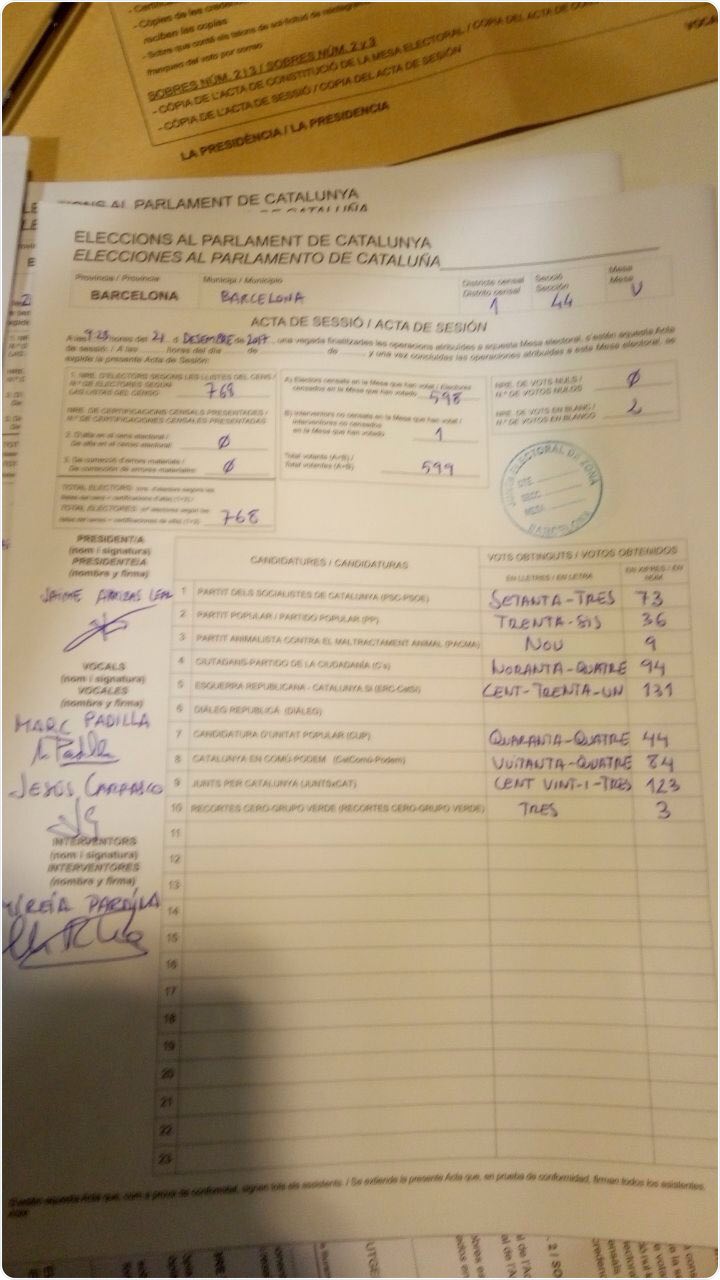 - Còpies de les
reciben las copias
- Sobre que conté els talons de sol·licitud de
franqueo del voto por correo
SOBRES NÚM. 2 i 3 / SOBRES NÚM. 2 y 3
- CÒPIA DE L'ACTA DE CONSTITUCIÓ DE LA MESA ELECTORAL / COPIA DEL ACTA DE
- CÒPIA DE L'ACTA DE SESSIÓ / COPIA DEL ACTA DE SESIÓN
LA PRESIDÈNCIA / LA PRESIDENCIA
AL PARLAMENT DE CATALUNYA
ELECCIONS AL PARLAMENT DE CATALUNYA
ELECCIONES AL PARLAMENTO DE CATALUÑA
Província / Provincia Municipi / Municipio Districte censal Secció Mesa
Distrito censal Sección Mesa
BARCELONA BARCELONA 1 44 U
ACTA DE SESSIÓ / ACTA DE SESIÓN
A les hores del 21 d DESEMBRE de 2017, una vegada finalitzades les operacions atribuïdes a aquesta Mesa electoral, s'estén aquesta Acta
de sessió: / A las horas del día de de y una vez concluidas las operaciones atribuidas a esta Mesa electoral, se
expide la presente Acta de Sesión:
1. NRE. D'ELECTORS SEGONS LES LLISTES DEL CENS /
N.º DE ELECTORES SEGÚN
LAS LISTAS DEL CENSO 768
NRE. DE CERTIFICACIONS CENSALS PRESENTADES /
N.º DE CERTIFICACIONES CENSALES PRESENTADAS
2. D'alta en el cens electoral /
De alta en el censo electoral: Ø
3. De correcció d'errors materials /
De corrección de errores materiales: Ø
TOTAL ELECTORS: nre. d'electors segons les
TOTAL ELECTORES: nº electores según las
768
A) Electors censats en la Mesa que han votat / Electores
censados en la Mesa que han votado 598
B) Interventors no censats en la Mesa que han votat /
Interventores no censados
en la Mesa que han votado 1
Total votants (A+B) /
Total votantes (A+B) 599
NRE. DE VOTS NULS /
N.º DE VOTOS NULOS Ø
NRE. DE VOTS EN BLANC /
N.º DE VOTOS EN BLANCO 2
JUNTA ELECTORAL DE ZONA
DTE.
SECC.
MESA
BARCELONA
PRESIDENT/A
(nom i signatura)
PRESIDENTE/A
(nombre y firma)
JAIME LEAL
VOCALS
(nom i signatura)
VOCALES
(nombre y firma)
MARC PADILLA
JESÚS CARRASCO
INTERVENTORS
(nom i signatura)
INTERVENTORES
(nombre y firma)
CANDIDATURES / CANDIDATURAS VOTS OBTINGUTS / VOTOS OBTENIDOS
EN LLETRES / EN LETRA EN XIFRES / EN NÚM.
1 PARTIT DELS SOCIALISTES DE CATALUNYA (PSC-PSOE) SETANTA-TRES 73
2 PARTIT POPULAR / PARTIDO POPULAR (PP) TRENTA-SIS 36
3 PARTIT ANIMALISTA CONTRA EL MALTRACTAMENT ANIMAL (PACMA) NOU 9
4 CIUTADANS-PARTIDO DE LA CIUDADANÍA (C's) NORANTA-QUATRE 94
5 ESQUERRA REPUBLICANA - CATALUNYA SÍ (ERC-CatSí) CENT-TRENTA-UN 131
6 DIÀLEG REPUBLICÀ (DIÀLEG)
7 CANDIDATURA D'UNITAT POPULAR (CUP) QUARANTA-QUATRE 44
8 CATALUNYA EN COMÚ-PODEM (CatComú-Podem) VUITANTA-QUATRE 84
9 JUNTS PER CATALUNYA (JUNTSxCAT) CENT VINT-I-TRES 123
10 RECORTES CERO-GRUPO VERDE (RECORTES CERO-GRUPO VERDE) TRES 3
11
12
13
14
15
16
17
18
19
20
21
22
23
S'estén aquesta Acta que, com a prova de conformitat, signen tots els assistents. / Se extiende la presente Acta que, en prueba de conformidad, firman todos los asistentes.